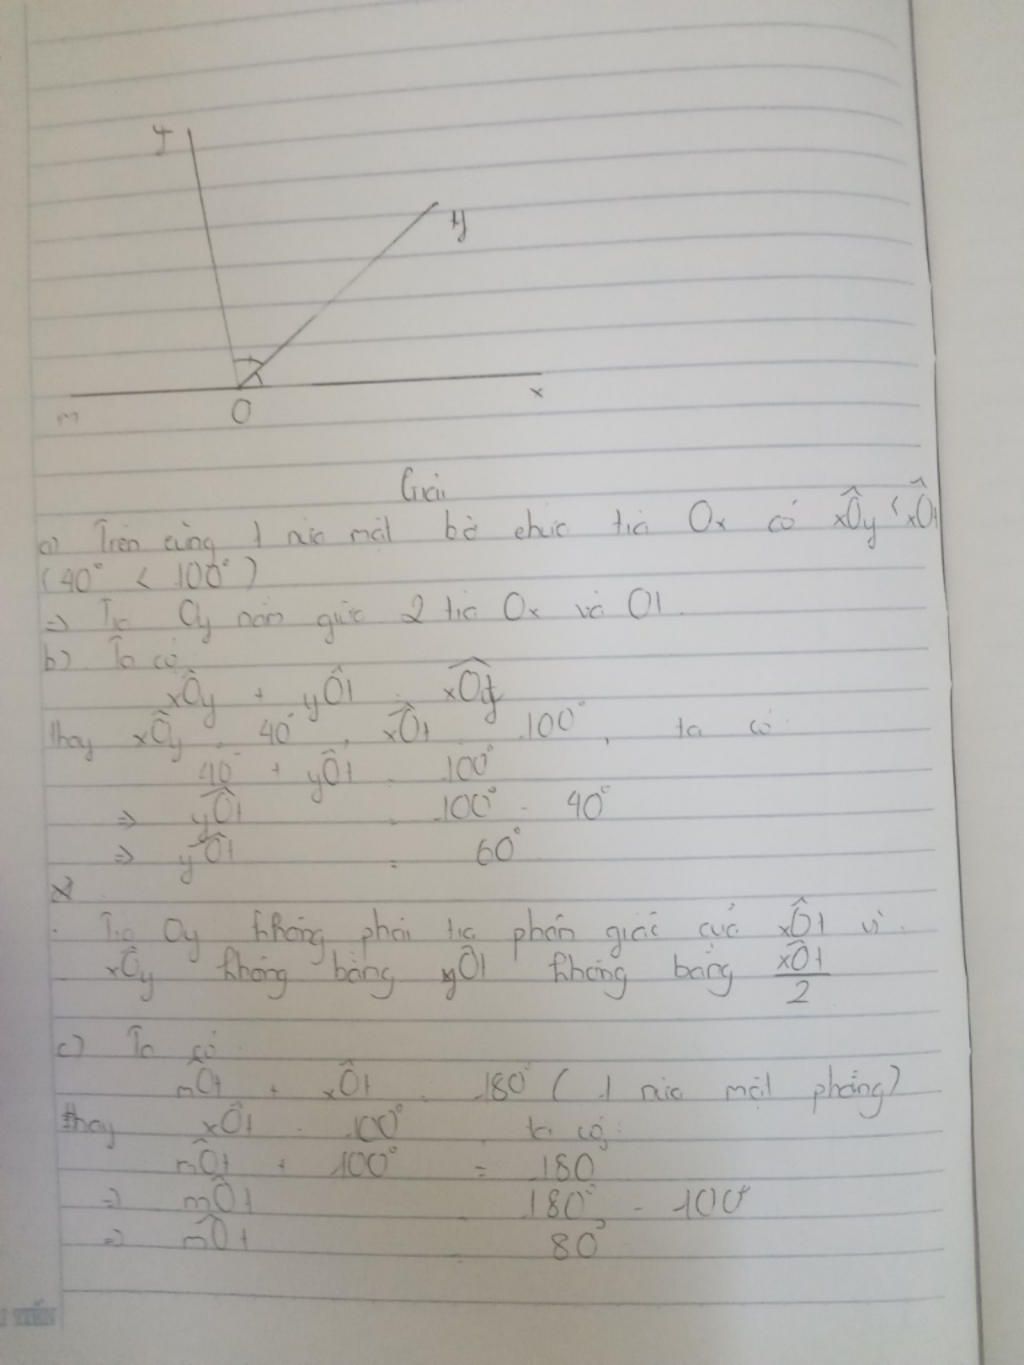 t
y
m
O
x
Giải
a) Trên cùng 1 nửa mặt bờ chứa tia Ox có xÔy < xÔt
(40° < 100°)
=> Tia Oy nằm giữa 2 tia Ox và Ot.
b) Ta có
xÔy + yÔt = xÔt
thay xÔy = 40°, xÔt = 100°, ta có:
40° + yÔt = 100°
=> yÔt = 100° - 40°
=> yÔt = 60°
Tia Oy không phải tia phân giác của xÔt vì
xÔy không bằng yÔt không bằng xÔt/2
c) Ta có
mÔt + xÔt = 180° (1 nửa mặt phẳng)
thay xÔt = 100°, ta có:
mÔt + 100° = 180°
=> mÔt = 180° - 100°
=> mÔt = 80°